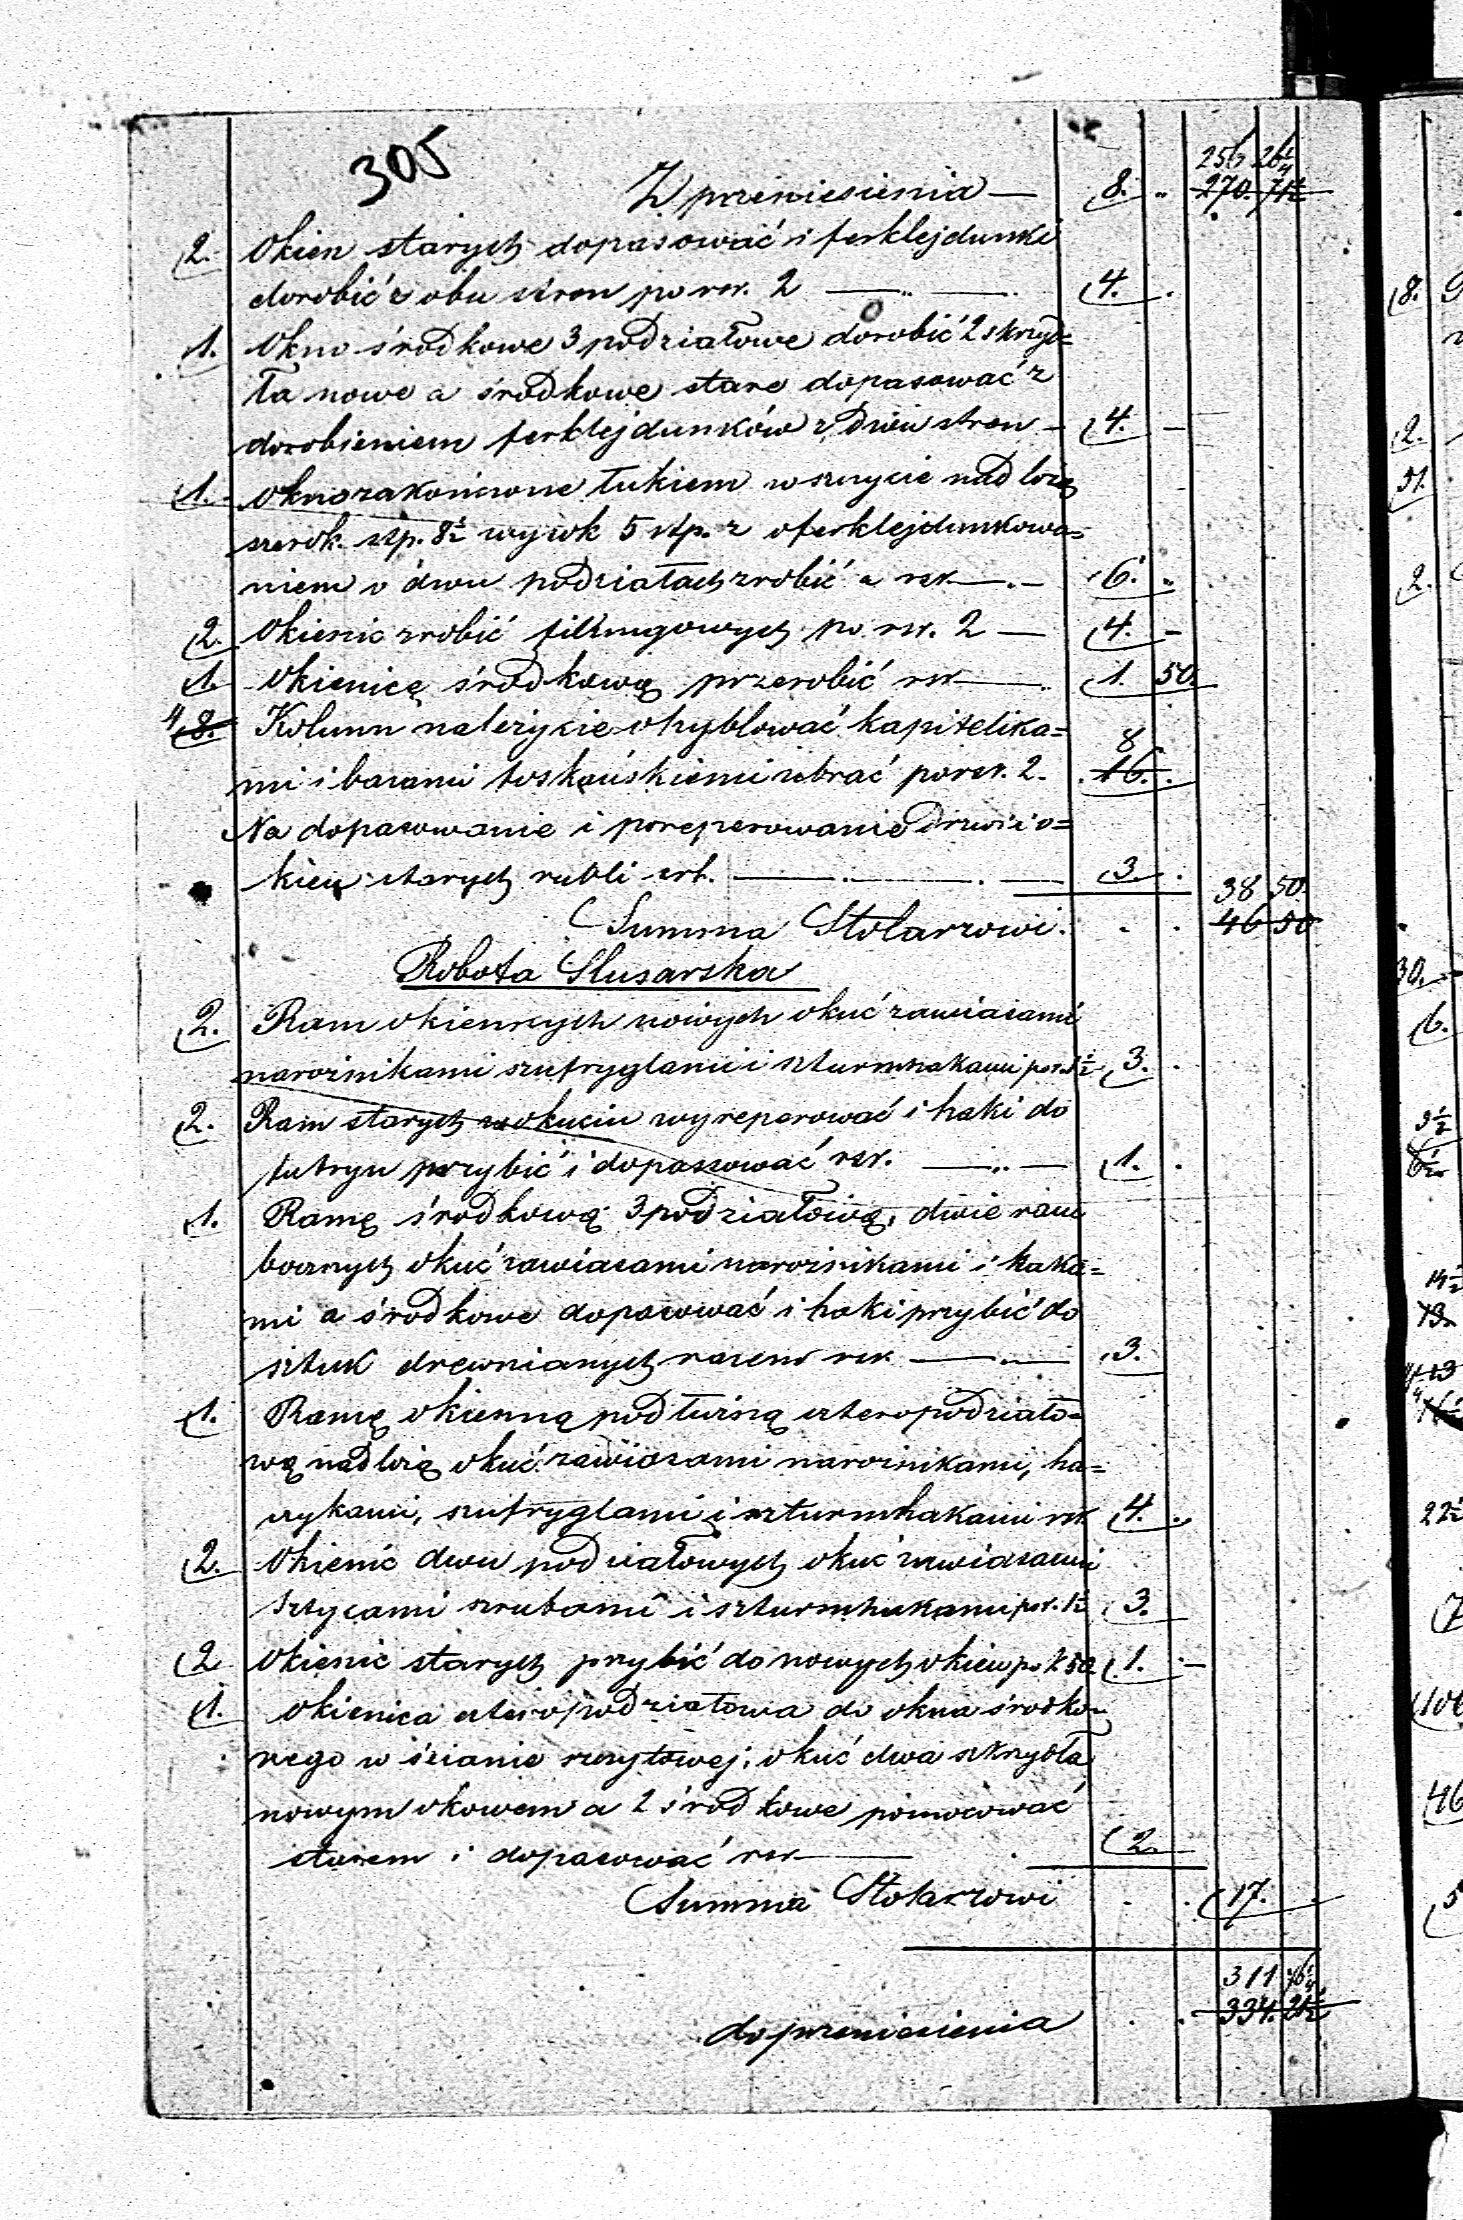 305
256 26 1/4
Z przeniesienia — 8. „ 270. 71 1/2
2. Okien starych dopasować i ferklejdunki
dorobić z obu stron po rsr. 2 — 4.
1. Okno środkowe 3 podziałowe dorobić 2 skrzyd=
ła nowe a środkowe stare dopasować z
dorobieniem ferklejdunków z dwu stron — 4. —
1. okno zakończone łukiem w szczycie nad lożą
szerok. stp. 8 1/2 wysok 5 stp. z oferklejdunkowa=
niem o dwu podziałach zrobić a rsr. — 6. „
2. Okienic zrobić filungowych po rsr. 2 — 4. —
1. Okienicę środkową przerobić rsr — 1. 50.
4 8. Kolumn należycie ohyblować kapitelika= 8
mi i bazami toskańskiemi ubrać po rsr. 2. 16.
Na dopasowanie i poreperowanie drzwi i o=
kien starych rubli srb. — 3.
38 50.
Summa Stolarzowi. 46 50
Robota Slusarska
2. Ram okiennych nowych okuć zawiasami
narożnikami szufryglami i szturmhakami po r. 1 1/2 3.
2. Ram starych w okuciu wyreparować i haki do
futryn przybić i dopassować rsr. — 1.
1. Ramę środkową 3 podziałową, dwie ram
bocznych okuć zawiasami narożnikami i haka=
mi a środkowe dopasować i haki przybić do
sztuk drewnianych razem rsr. — 3.
1. Ramę okienną podłużną cztero podziało=
wą nad lożą okuć zawiasami narożnikami, ha=
czykami, szufryglami i szturmhakami rsr. 4.
2. Okienic dwu podziałowych okuć zawiasami
sztycami szrubami i szturmhakami po r. 1 1/2 3.
2 Okienic starych przybić do nowych okien po k 50 1. —
1. Okienica czteropodziałowa do okna środko=
wego w ścianie szczytowej; okuć dwa skrzydła
nowym okowem a 2 środkowe pomocować
starem i dopasować rsr — 2.
Summa Stolarzowi 17.
311 76 1/4
do przeniesienia 334. 21 1/2